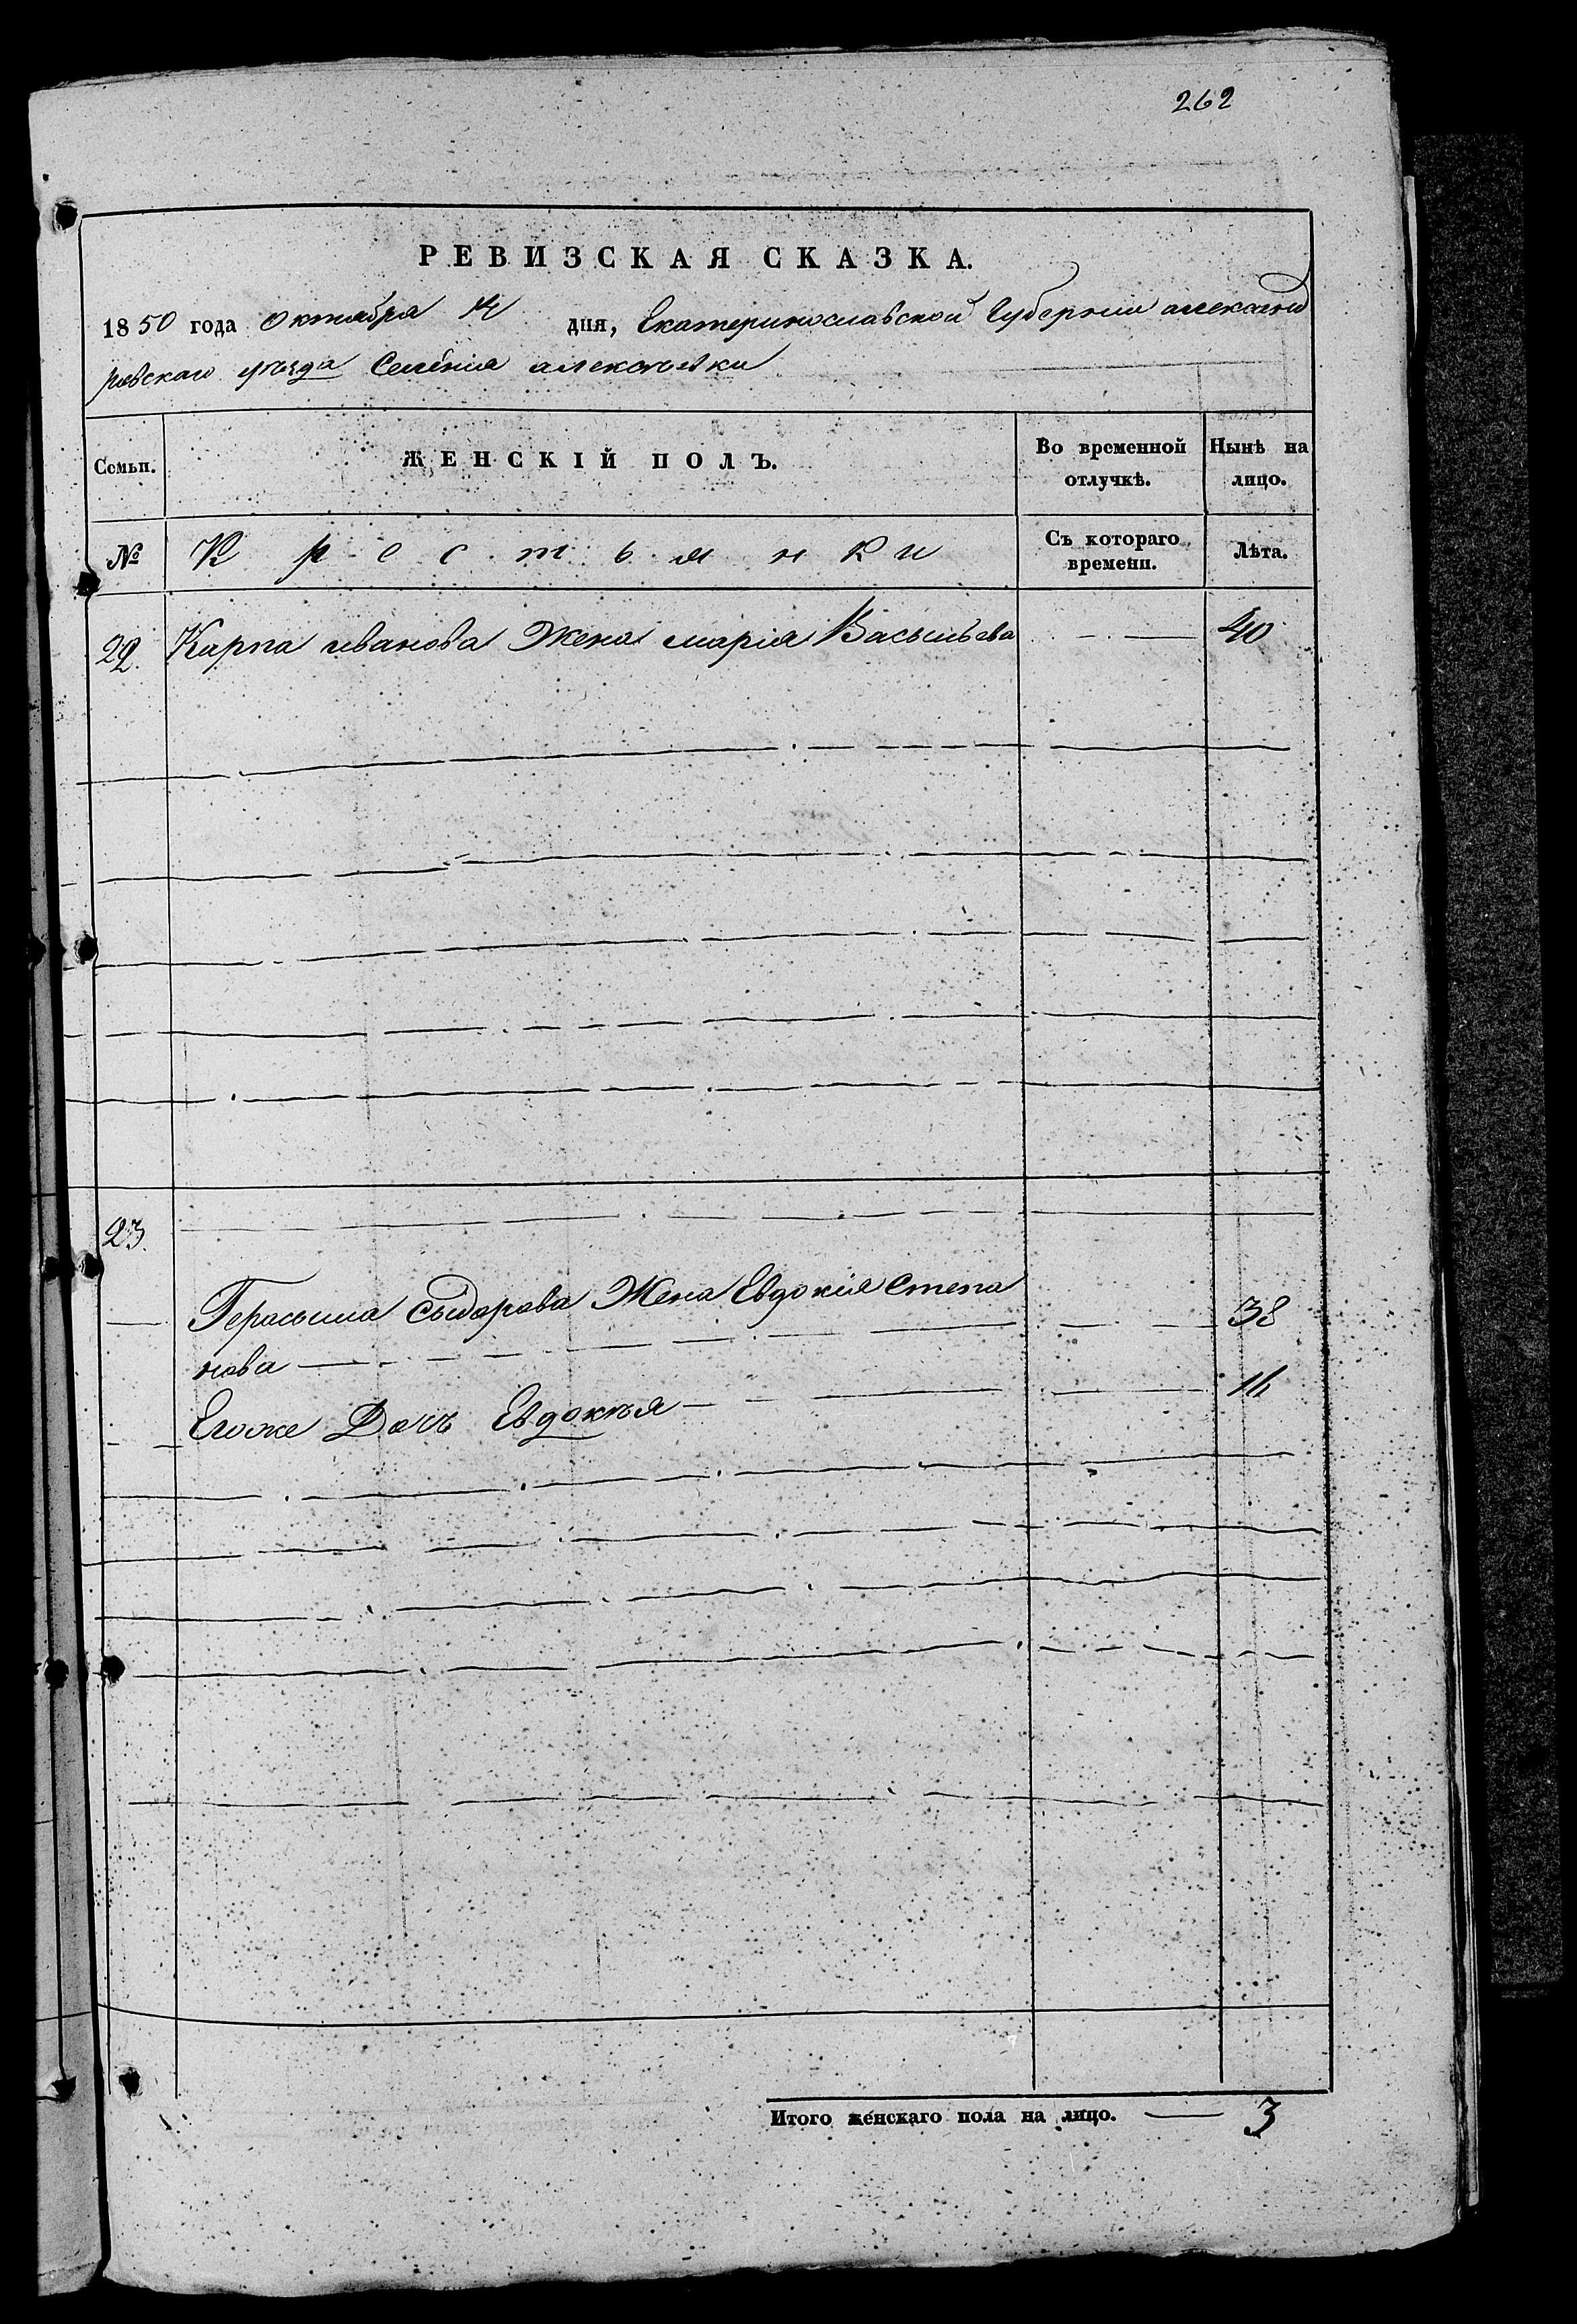 262
РЕВИЗСКАЯ СКАЗКА.
1850 года октября 14 дня, Екатеринославской Губернии александ
ровскаго уезда Селения алексеевки
Семьи. ЖЕНСКІЙ ПОЛЪ. Во временной отлучкѣ. Нынѣ на лицо.
№ Крестьянки Съ котораго времени. Лѣта.
22. Карпа иванова Жена марія Васильева 40
23.
Герасыма Сыдорова Жена Евдокія Степа
нова 38
Егоже Дочь Евдокѣя 16
Итого женскаго пола на лицо. 3